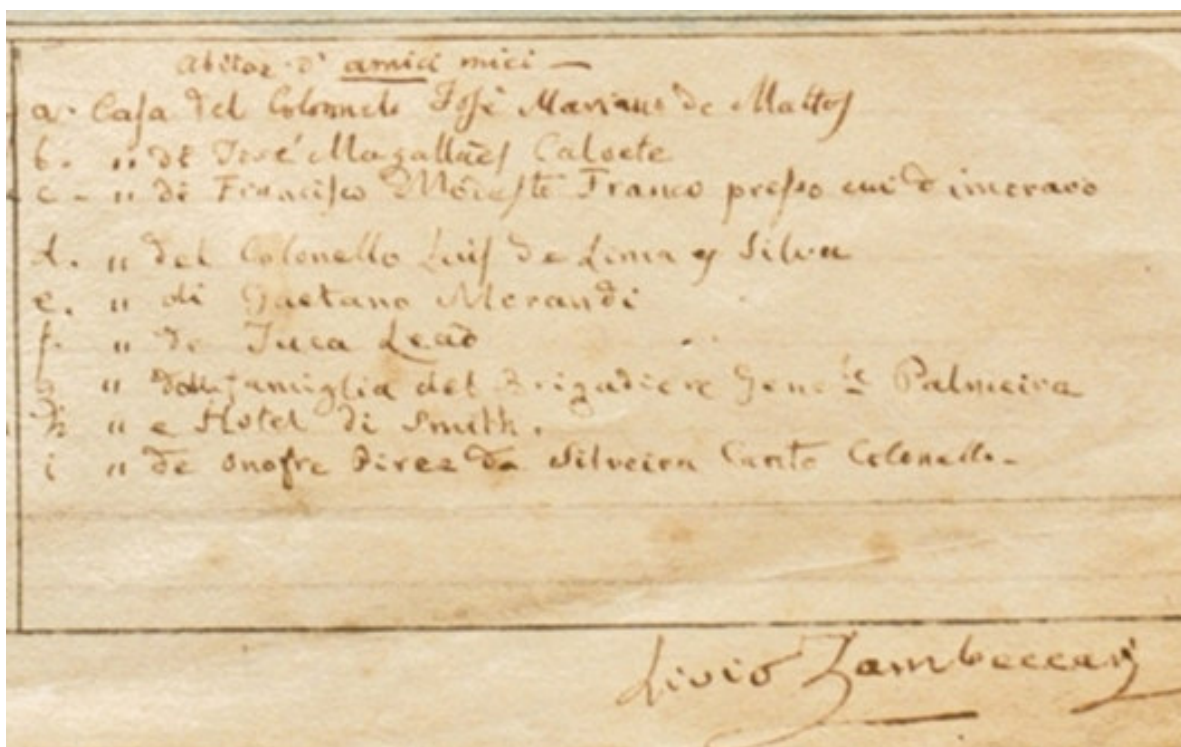 Abitaz. d' amici miei —
a. Casa del Colonnelo José Mariano de Mattos
b. " di José Magallaẽs Calvete
c - " di Francisco Modesto Franco presso cui dimoravo
d. " del Colonello Luis de Lima y Silva
e. " di Gaetano Morandi
f. " de Juca Leaõ
g " della famiglia del Brigadiere Gen.le Palmeira
h " e Hotel di Smith.
i " de Onofre Pirez da Silveira Canto Colonello.
Livio Zambeccari